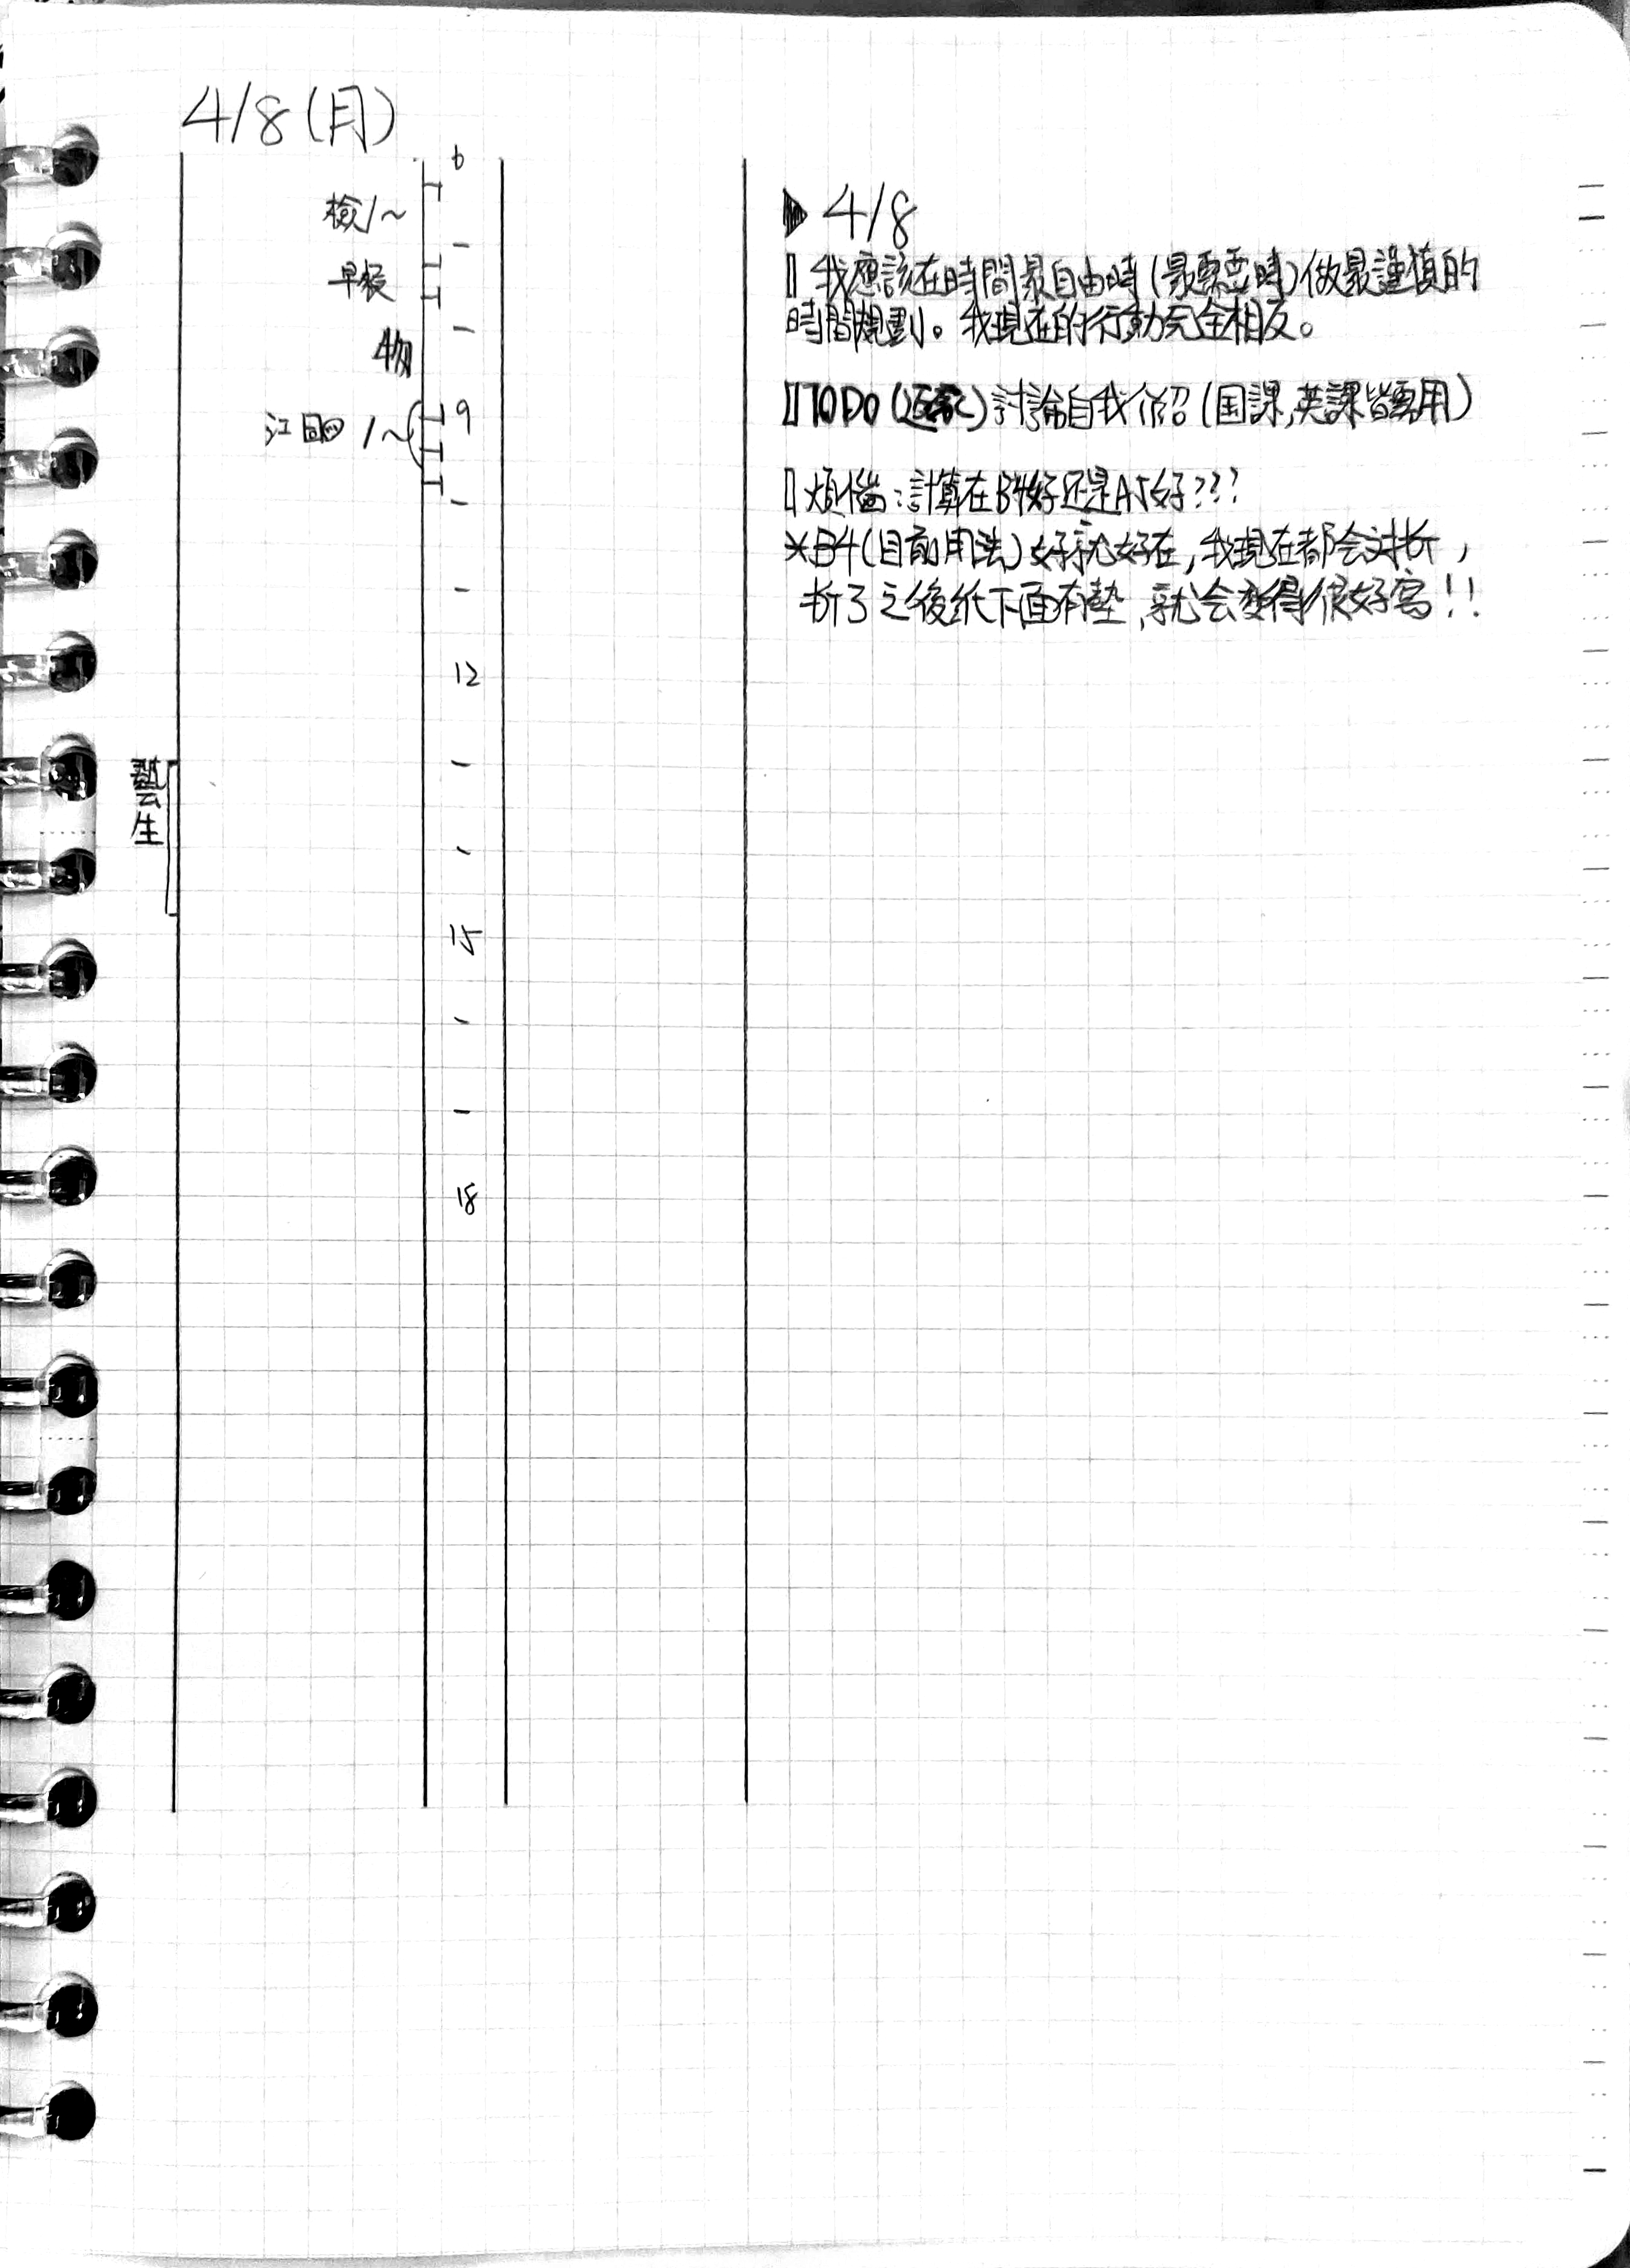 4/8(月)
6
檢1~
早餐
物
9
江 1~
12
藝生
15
18
▶ 4/8
我應該在時間最自由時(最需要時)做最謹慎的
時間規劃。我現在的行動完全相反。
TODO ( ) 討論自我介紹(国課,英課皆專用)
煩惱:計算在B4好还是A5好???
※B4(目前用法)好就好在,我現在都会対折,
折了之後紙下面有墊,就会変得很好寫!!